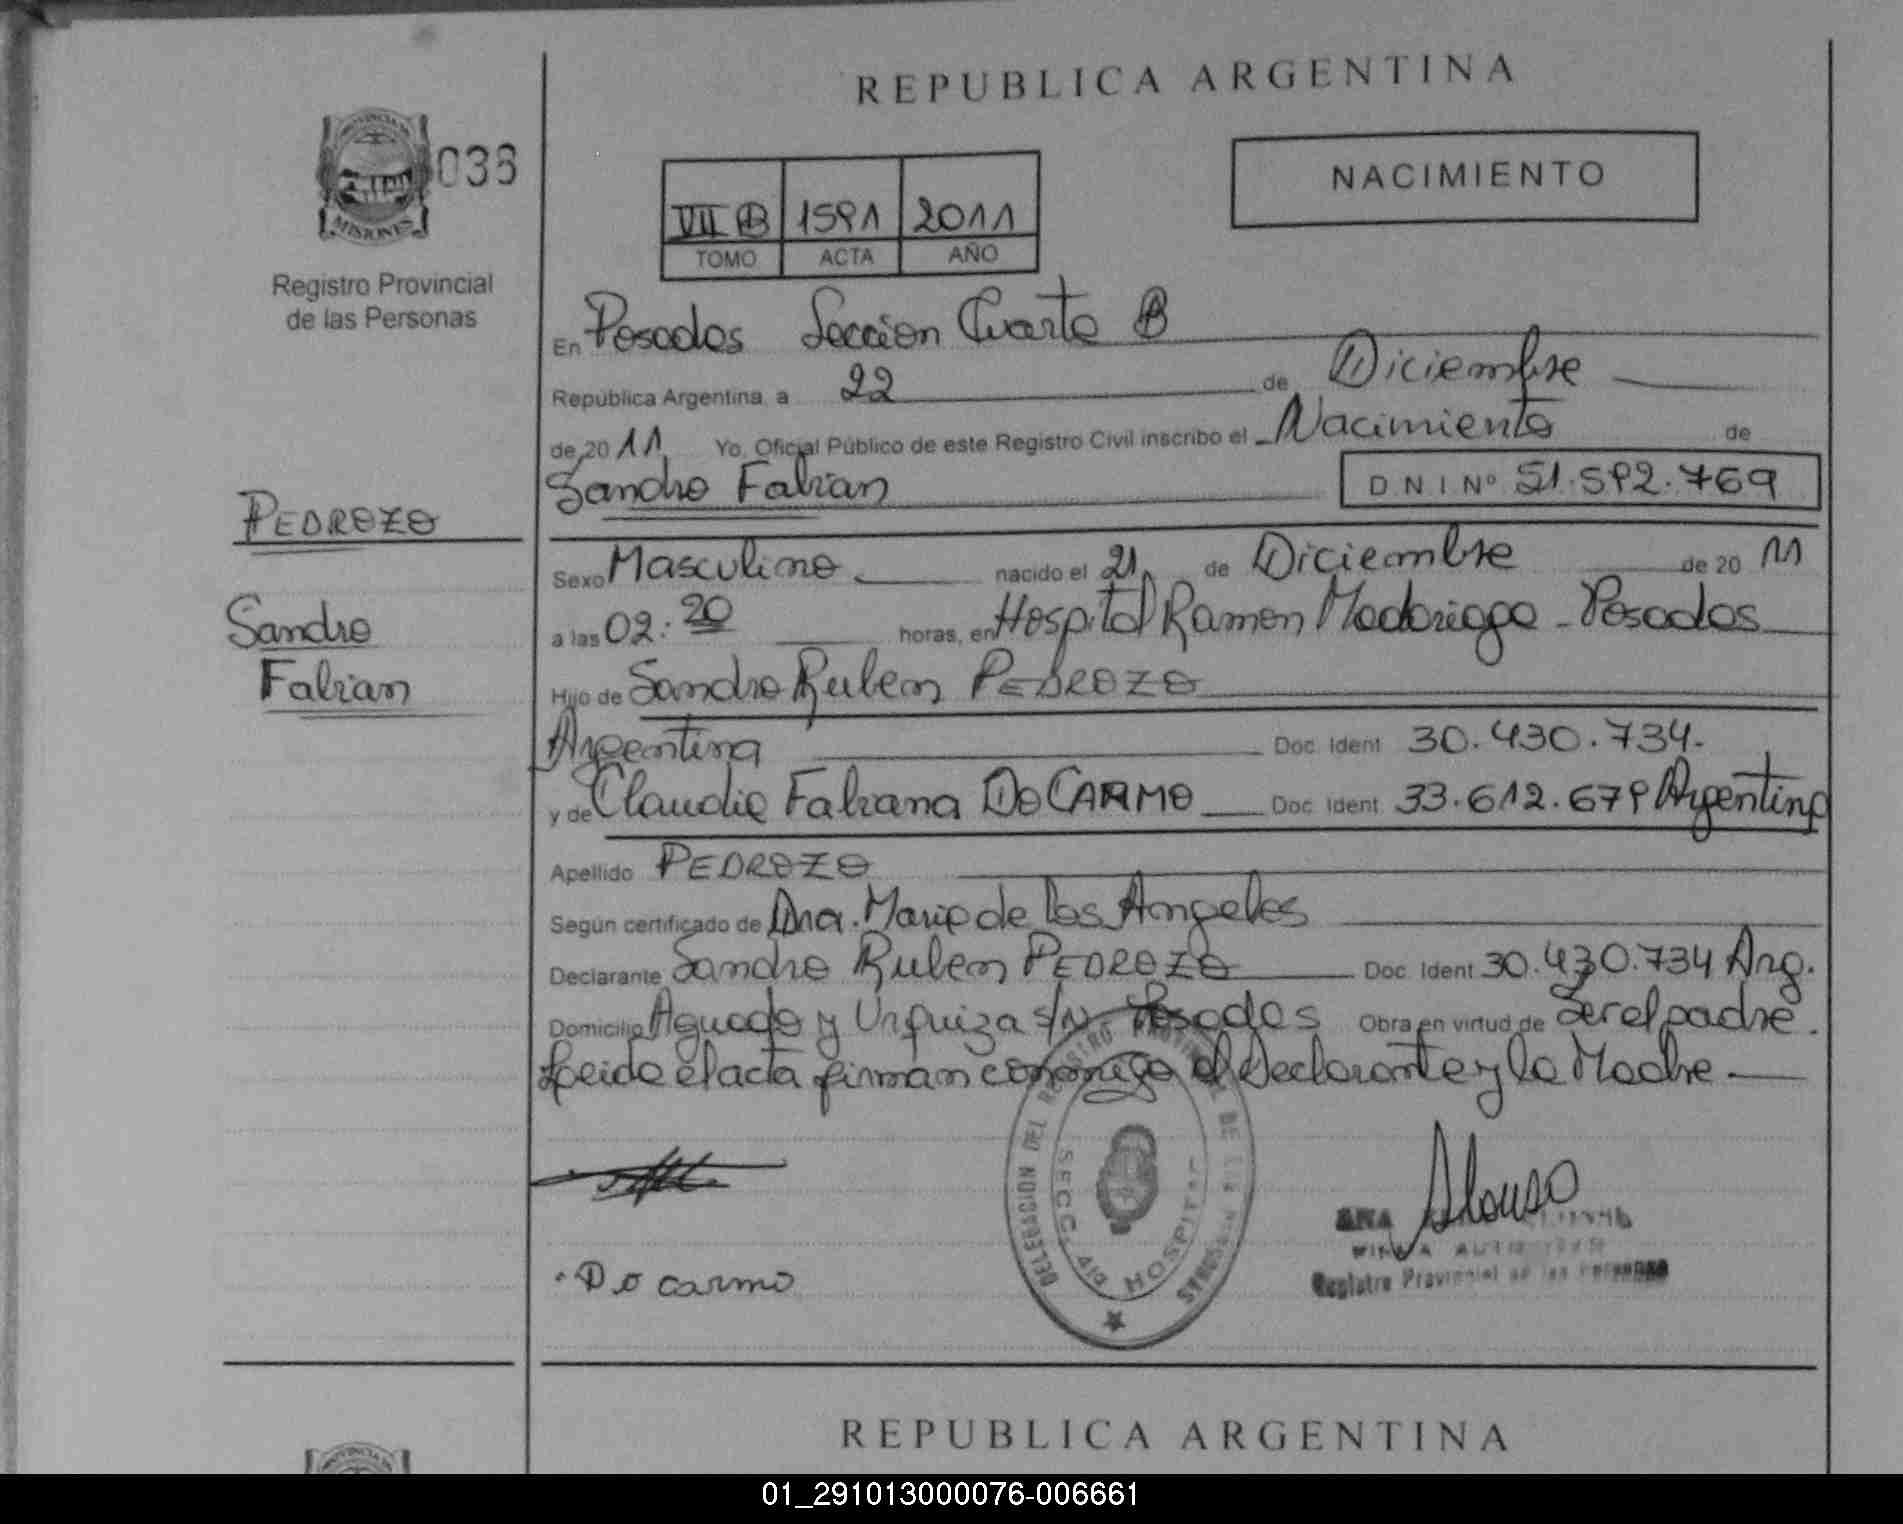 REPUBLICA ARGENTINA
PROVINCIA DE
MISIONES
036
Registro Provincial
de las Personas
NACIMIENTO
VII B 1591 2011
TOMO ACTA AÑO
En Posadas Seccion Cuarta B
República Argentina, a 22 de Diciembre
de 2011 Yo, Oficial Público de este Registro Civil inscribo el Nacimiento de
Sandro Fabian D N I Nº 51.592.769
PEDROZO
Sandro
Fabian
Sexo Masculino nacido el 21 de Diciembre de 20 11
a las 02:20 horas, en Hospital Ramon Madariaga - Posadas
Hijo de Sandro Ruben PEDROZO
Argentina Doc. Ident. 30.430.734.
y de Claudia Fabiana DO CARMO Doc. Ident. 33.612.679 Argentina
Apellido PEDROZO
Según certificado de Dra. Maria de los Angeles
Declarante Sandro Ruben PEDROZO Doc. Ident. 30.430.734 Arg.
Domicilio Aguado y Urquiza s/N Posadas Obra en virtud de Ser el padre.
Leida el acta firman conmigo el Declarante y la Madre.
DELEGACION DEL REGISTRO PROVINCIAL DE LAS PERSONAS
HOSPITAL
Alonso
ANA
Registro Provincial de las Personas
Do carmo
REPUBLICA ARGENTINA
01_291013000076-006661